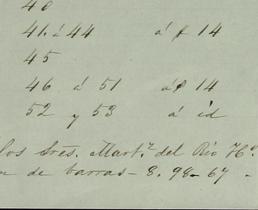 40
41. á 44 á $ 14
45
46 á 51 á $ 14
52 y 53 á id
los Sres. Mart.z del Rio H.s
de barras - 8. 98 - 67 -